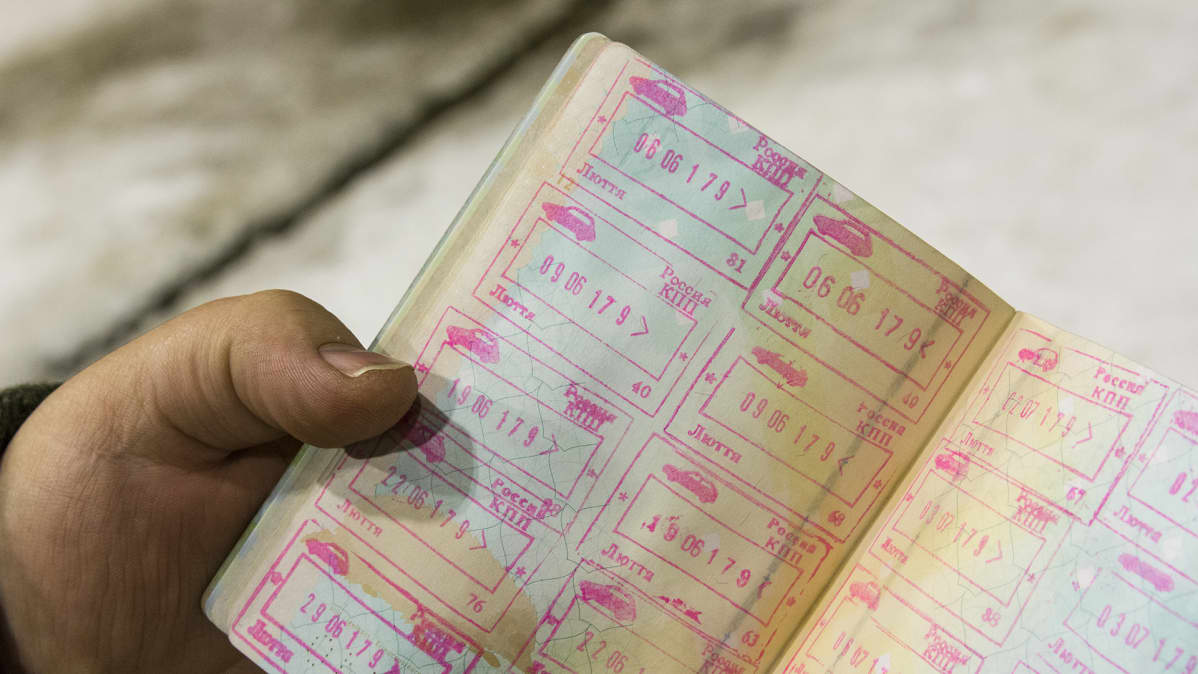 Россия
КПП
06 06 179 >
Люття
31
Россия
КПП
09 06 179 >
Люття
40
Россия
КПП
19 06 179 >
Россия
КПП
22 06 179 >
Люття
76
29 06 179
Люття
Россия
КПП
06 06 179 <
Люття
49
Россия
КПП
09 06 179 <
Люття
68
Россия
КПП
19 06 179
Люття
63
22 06
Россия
КПП
22 07 179 >
Люття
67
03 07 179 >
Люття
38
Россия
КПП
06 07 179
Люття
03 07 179
Люття